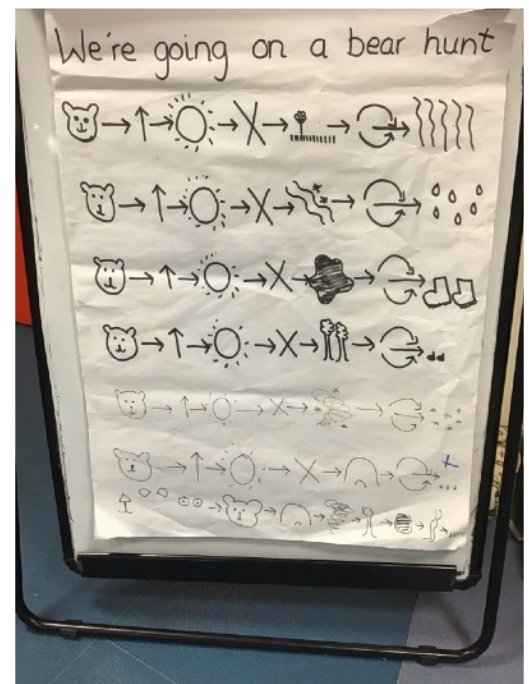 We're going on a bear hunt